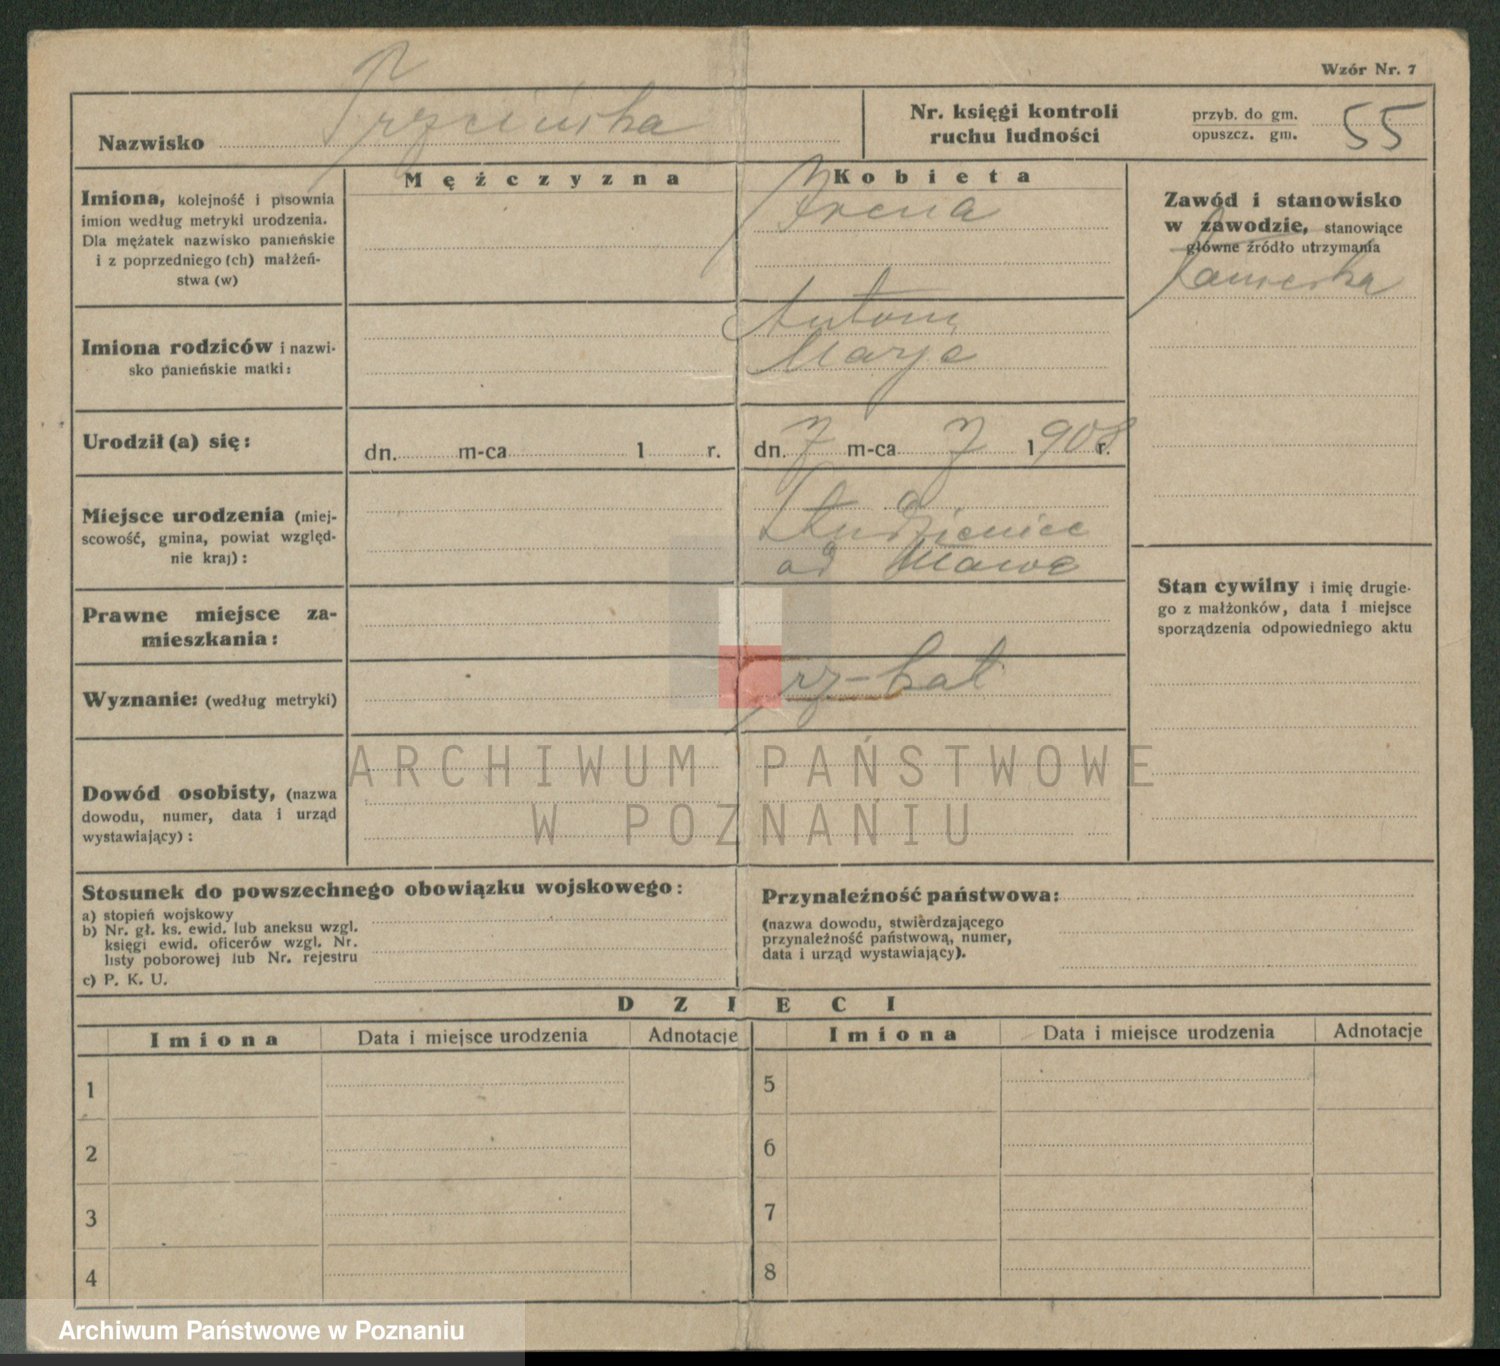 Wzór Nr. 7
Nazwisko Trzcińska
Nr. księgi kontroli
ruchu ludności
przyb. do gm.
opuszcz. gm.
55
Mężczyzna
Kobieta
Imiona, kolejność i pisownia
imion według metryki urodzenia.
Dla mężatek nazwisko panieńskie
i z poprzedniego (ch) małżeń-
stwa (w)
Irena
Zawód i stanowisko
w zawodzie, stanowiące
główne źródło utrzymania
Imiona rodziców i nazwi-
sko panieńskie matki:
Antoni
Marja
Urodził (a) się:
dn. m-ca 1 r.
dn. 7 m-ca 7 1908 r.
Miejsce urodzenia (miej-
scowość, gmina, powiat względ-
nie kraj):
Studzieniec
Stan cywilny i imię drugie-
go z małżonków, data i miejsce
sporządzenia odpowiedniego aktu
Prawne miejsce za-
mieszkania:
Wyznanie: (według metryki)
rz-kat
ARCHIWUM PAŃSTWOWE
W POZNANIU
Dowód osobisty, (nazwa
dowodu, numer, data i urząd
wystawiający):
Stosunek do powszechnego obowiązku wojskowego:
a) stopień wojskowy
b) Nr. gł. ks. ewid. lub aneksu wzgl.
księgi ewid. oficerów wzgl. Nr.
listy poborowej lub Nr. rejestru
c) P. K. U.
Przynależność państwowa:
(nazwa dowodu, stwierdzającego
przynależność państwową, numer,
data i urząd wystawiający).
DZIECI
Imiona Data i miejsce urodzenia Adnotacje Imiona Data i miejsce urodzenia Adnotacje
1 5
2 6
3 7
4 8
Archiwum Państwowe w Poznaniu